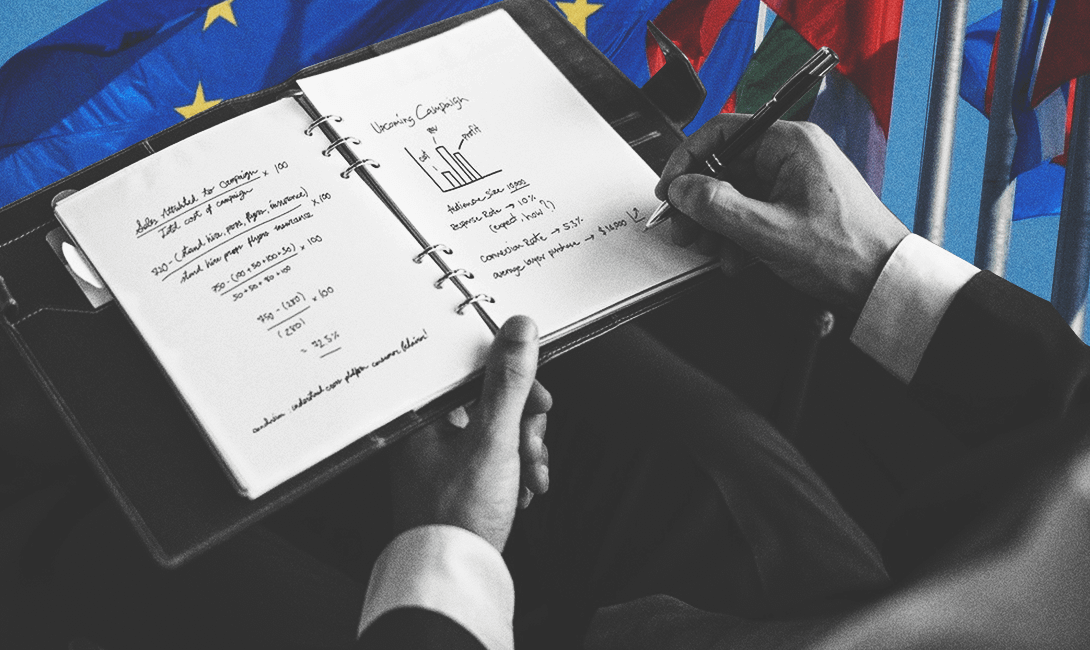 Sales Attributed to Campaign × 100
Total cost of campaign
(stand hire, pops, flyers, insurance) × 100
stand hire props flyers insurance
750 - (100+50+100+30) × 100
50+50+80+100
750 - (280) × 100
(280)
= 72.5%
conclusion, understand cross platform consumer behavior!
Upcoming Campaign
cost
profit
Audience size 10,000
Response Rate → 10%
(expect : how?)
conversion Rate → 5.3%
average buyer purchase → $ 16,000